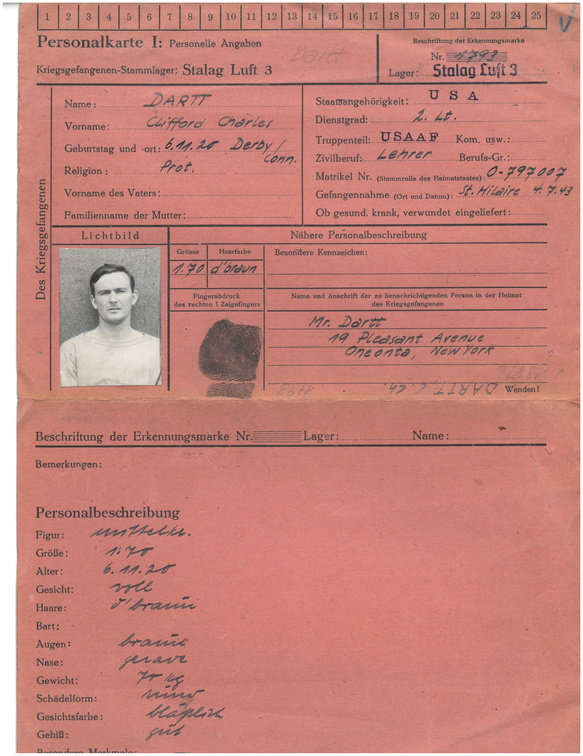 1 2 3 4 5 6 7 8 9 10 11 12 13 14 15 16 17 18 19 20 21 22 23 24 25
Personalkarte I: Personelle Angaben
Dartt
Kriegsgefangenen-Stammlager: Stalag Luft 3
Beschriftung der Erkennungsmarke
Nr. 1793
Lager: Stalag Luft 3
Des Kriegsgefangenen
Name: DARTT
Vorname: Clifford Charles
Geburtstag und -ort: 6.11.20 Derby/
Conn.
Religion: Prot.
Vorname des Vaters:
Familienname der Mutter:
Staatsangehörigkeit: USA
Dienstgrad: 2. Lt.
Truppenteil: USAAF Kom. usw.:
Zivilberuf: Lehrer Berufs-Gr.:
Matrikel Nr. (Stammrolle des Heimatstaates) O-797007
Gefangennahme (Ort und Datum): St. Hilaire 4.7.43
Ob gesund, krank, verwundet eingeliefert:
Lichtbild
Grösse Haarfarbe
1.70 d'braun
Fingerabdruck
des rechten ! Zeigefingers
Nähere Personalbeschreibung
Besondere Kennzeichen:
Name und Anschrift der zu benachrichtigenden Person in der Heimat
des Kriegsgefangenen
Mr. Dartt
19 Pleasant Avenue
Oneonta, New York
DARTT, C. Ch.
Wenden!
Beschriftung der Erkennungsmarke Nr. Lager: Name:
Bemerkungen:
Personalbeschreibung
Figur: mittelkr.
Größe: 1.70
Alter: 6.11.20
Gesicht: voll
Haare: d'braun
Bart:
Augen: braun
Nase: gerade
Gewicht: 70 kg
Schädelform: rund
Gesichtsfarbe: bläßlich
Gebiß: gut
Besondere Merkmale: